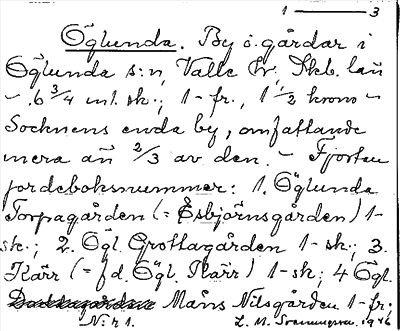 1 — 3
Öglunda. By o. gårdar i
Öglunda s:n, Valle hr, Skb. län
– 6 3/4 ml. sk.; 1-fr., 1 1/2 krono –
Socknens enda by, omfattande
mera än 2/3 av den. – Fjorton
jordeboksnummer: 1. Öglunda
Torpagården (= Esbjörnsgården) 1-
sk.; 2. Ögl. Grottagården 1-sk.; 3.
Kärr (= f.d. Ögl. Kärr) 1-sk.; 4 Ögl.
Måns Nilsgården 1-fr;
N:r 1. L. M. 1946